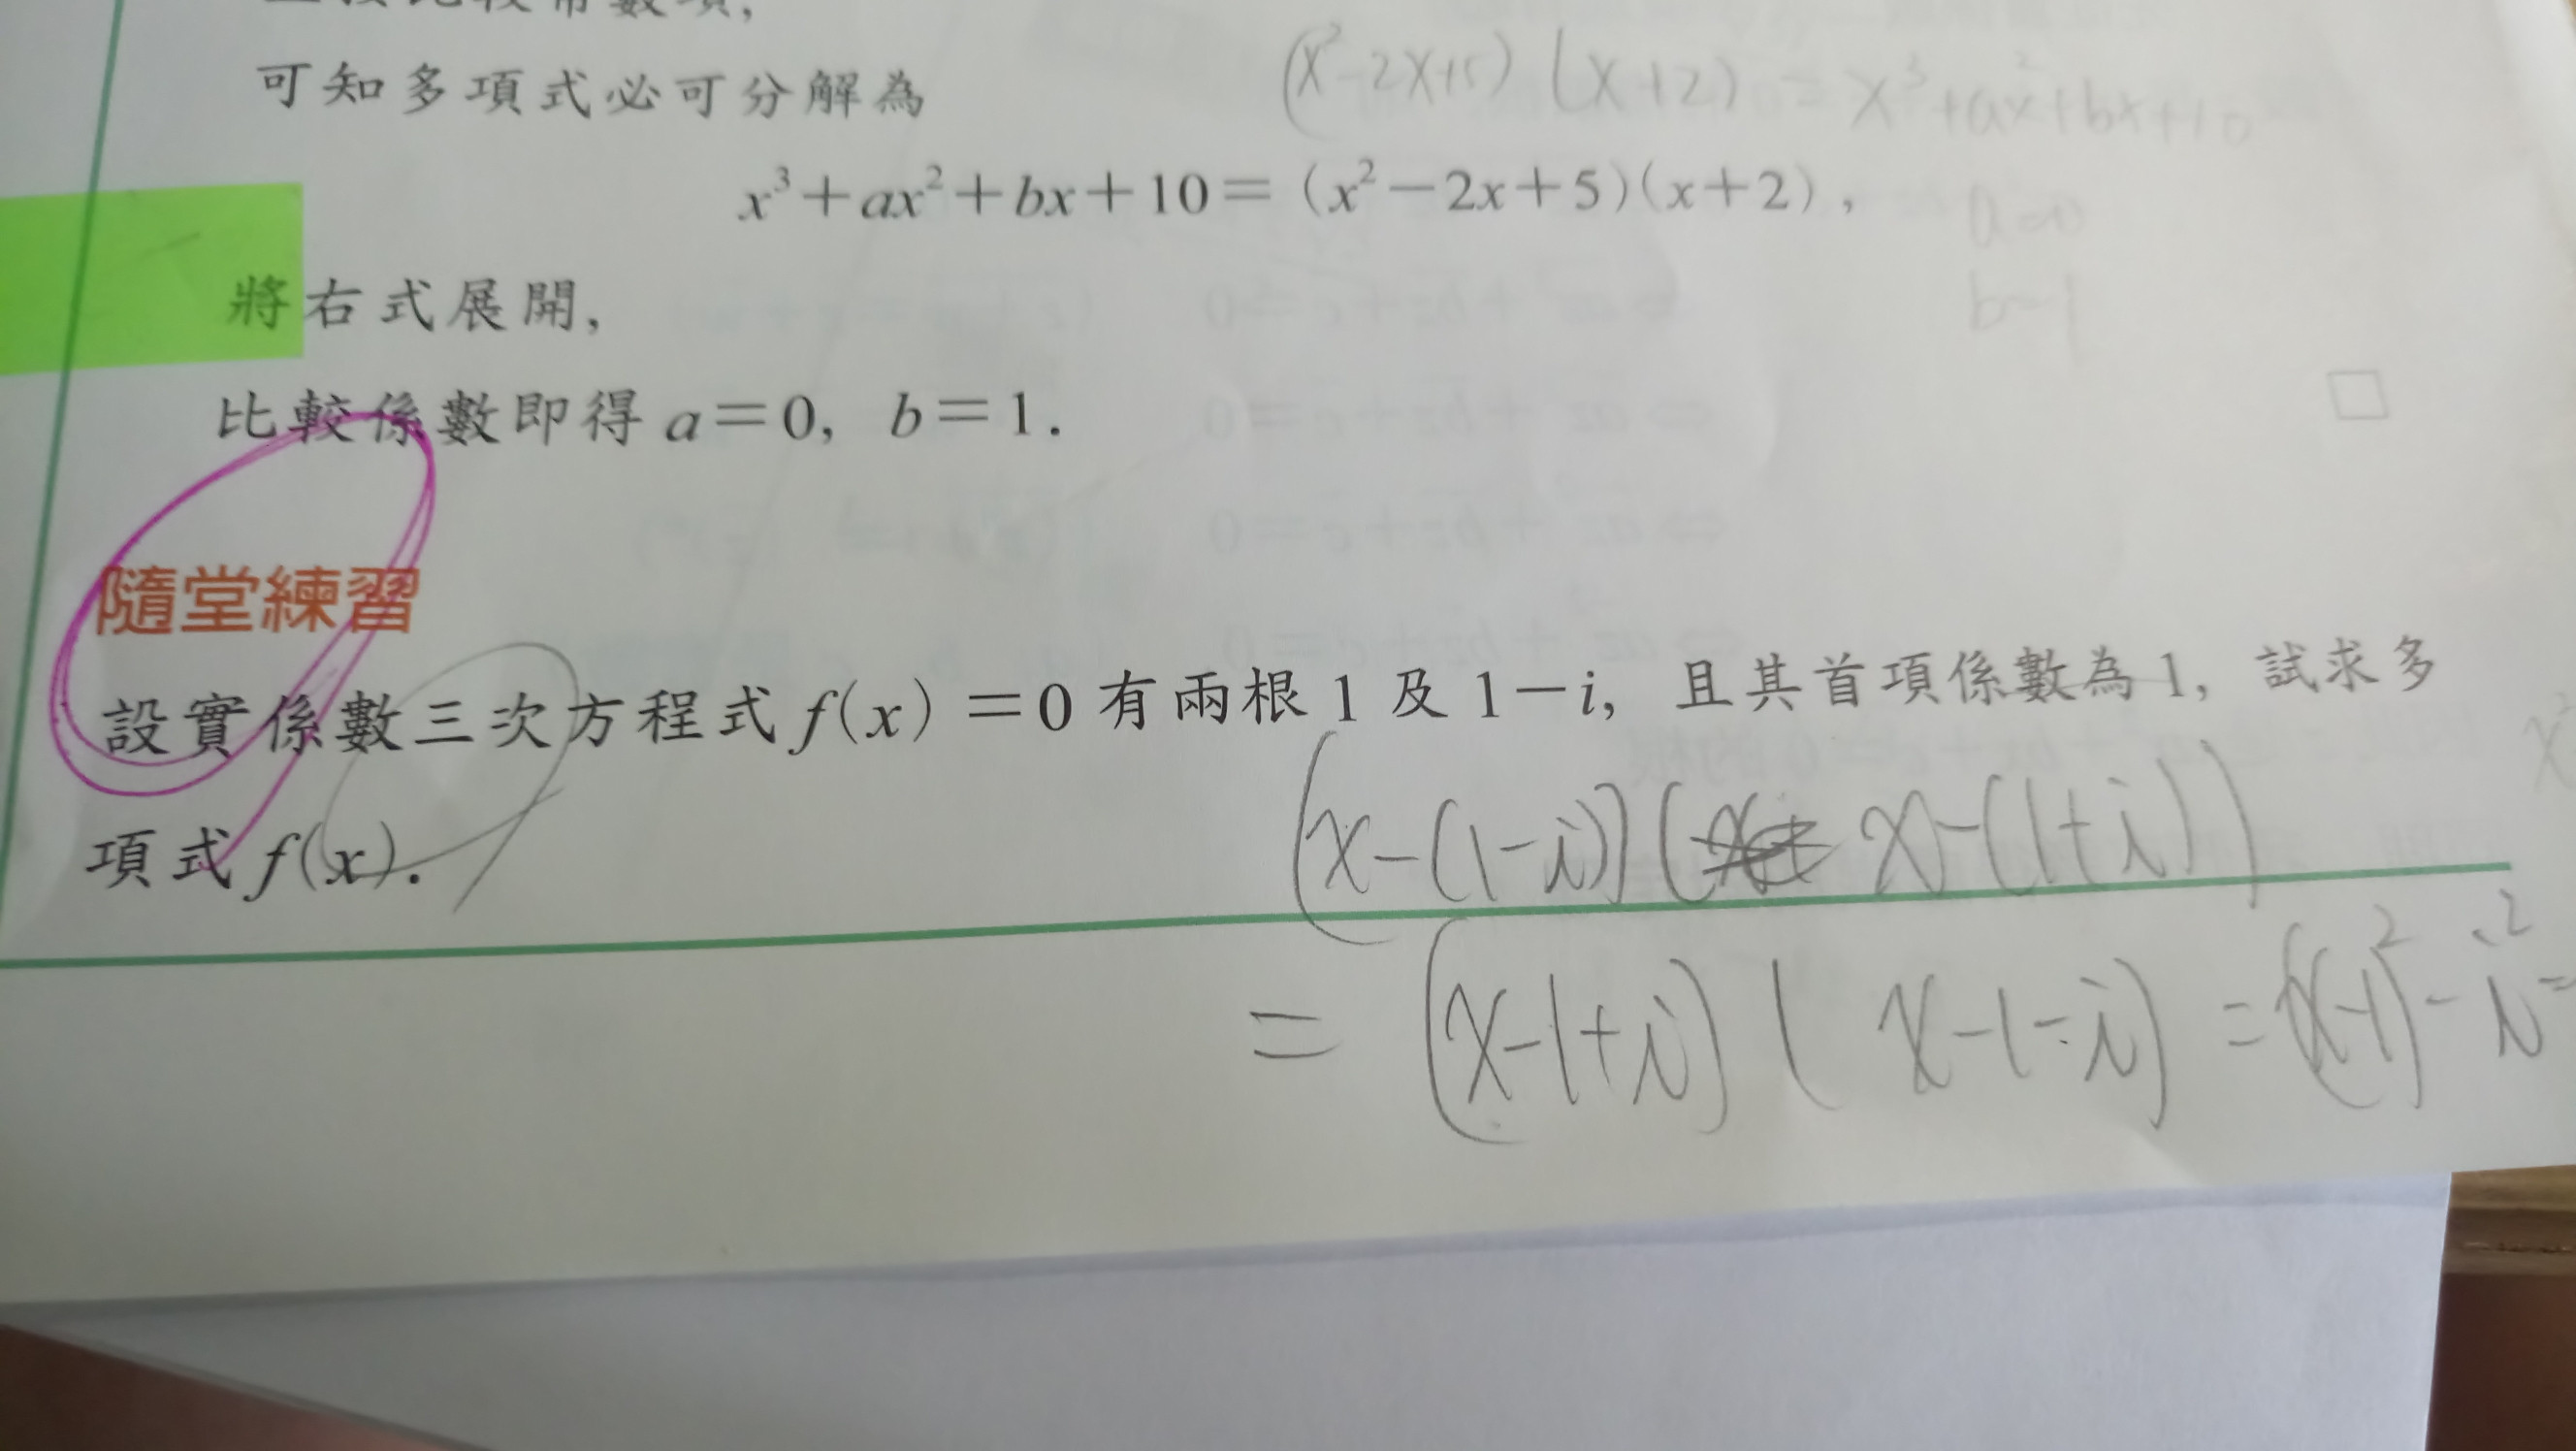 可知多項式必可分解為
(x²-2x+5)(x+2)=x³+ax²+bx+10
x³+ax²+bx+10=(x²-2x+5)(x+2),
a=0
將右式展開,
b=1
比較係數即得a=0, b=1.
隨堂練習
設實係數三次方程式f(x)=0有兩根1及1-i, 且其首項係數為1, 試求多
項式f(x).
(x-(1-i))( x-(1+i))
=(x-1+i)(x-1-i)=(x-1)²-i²=